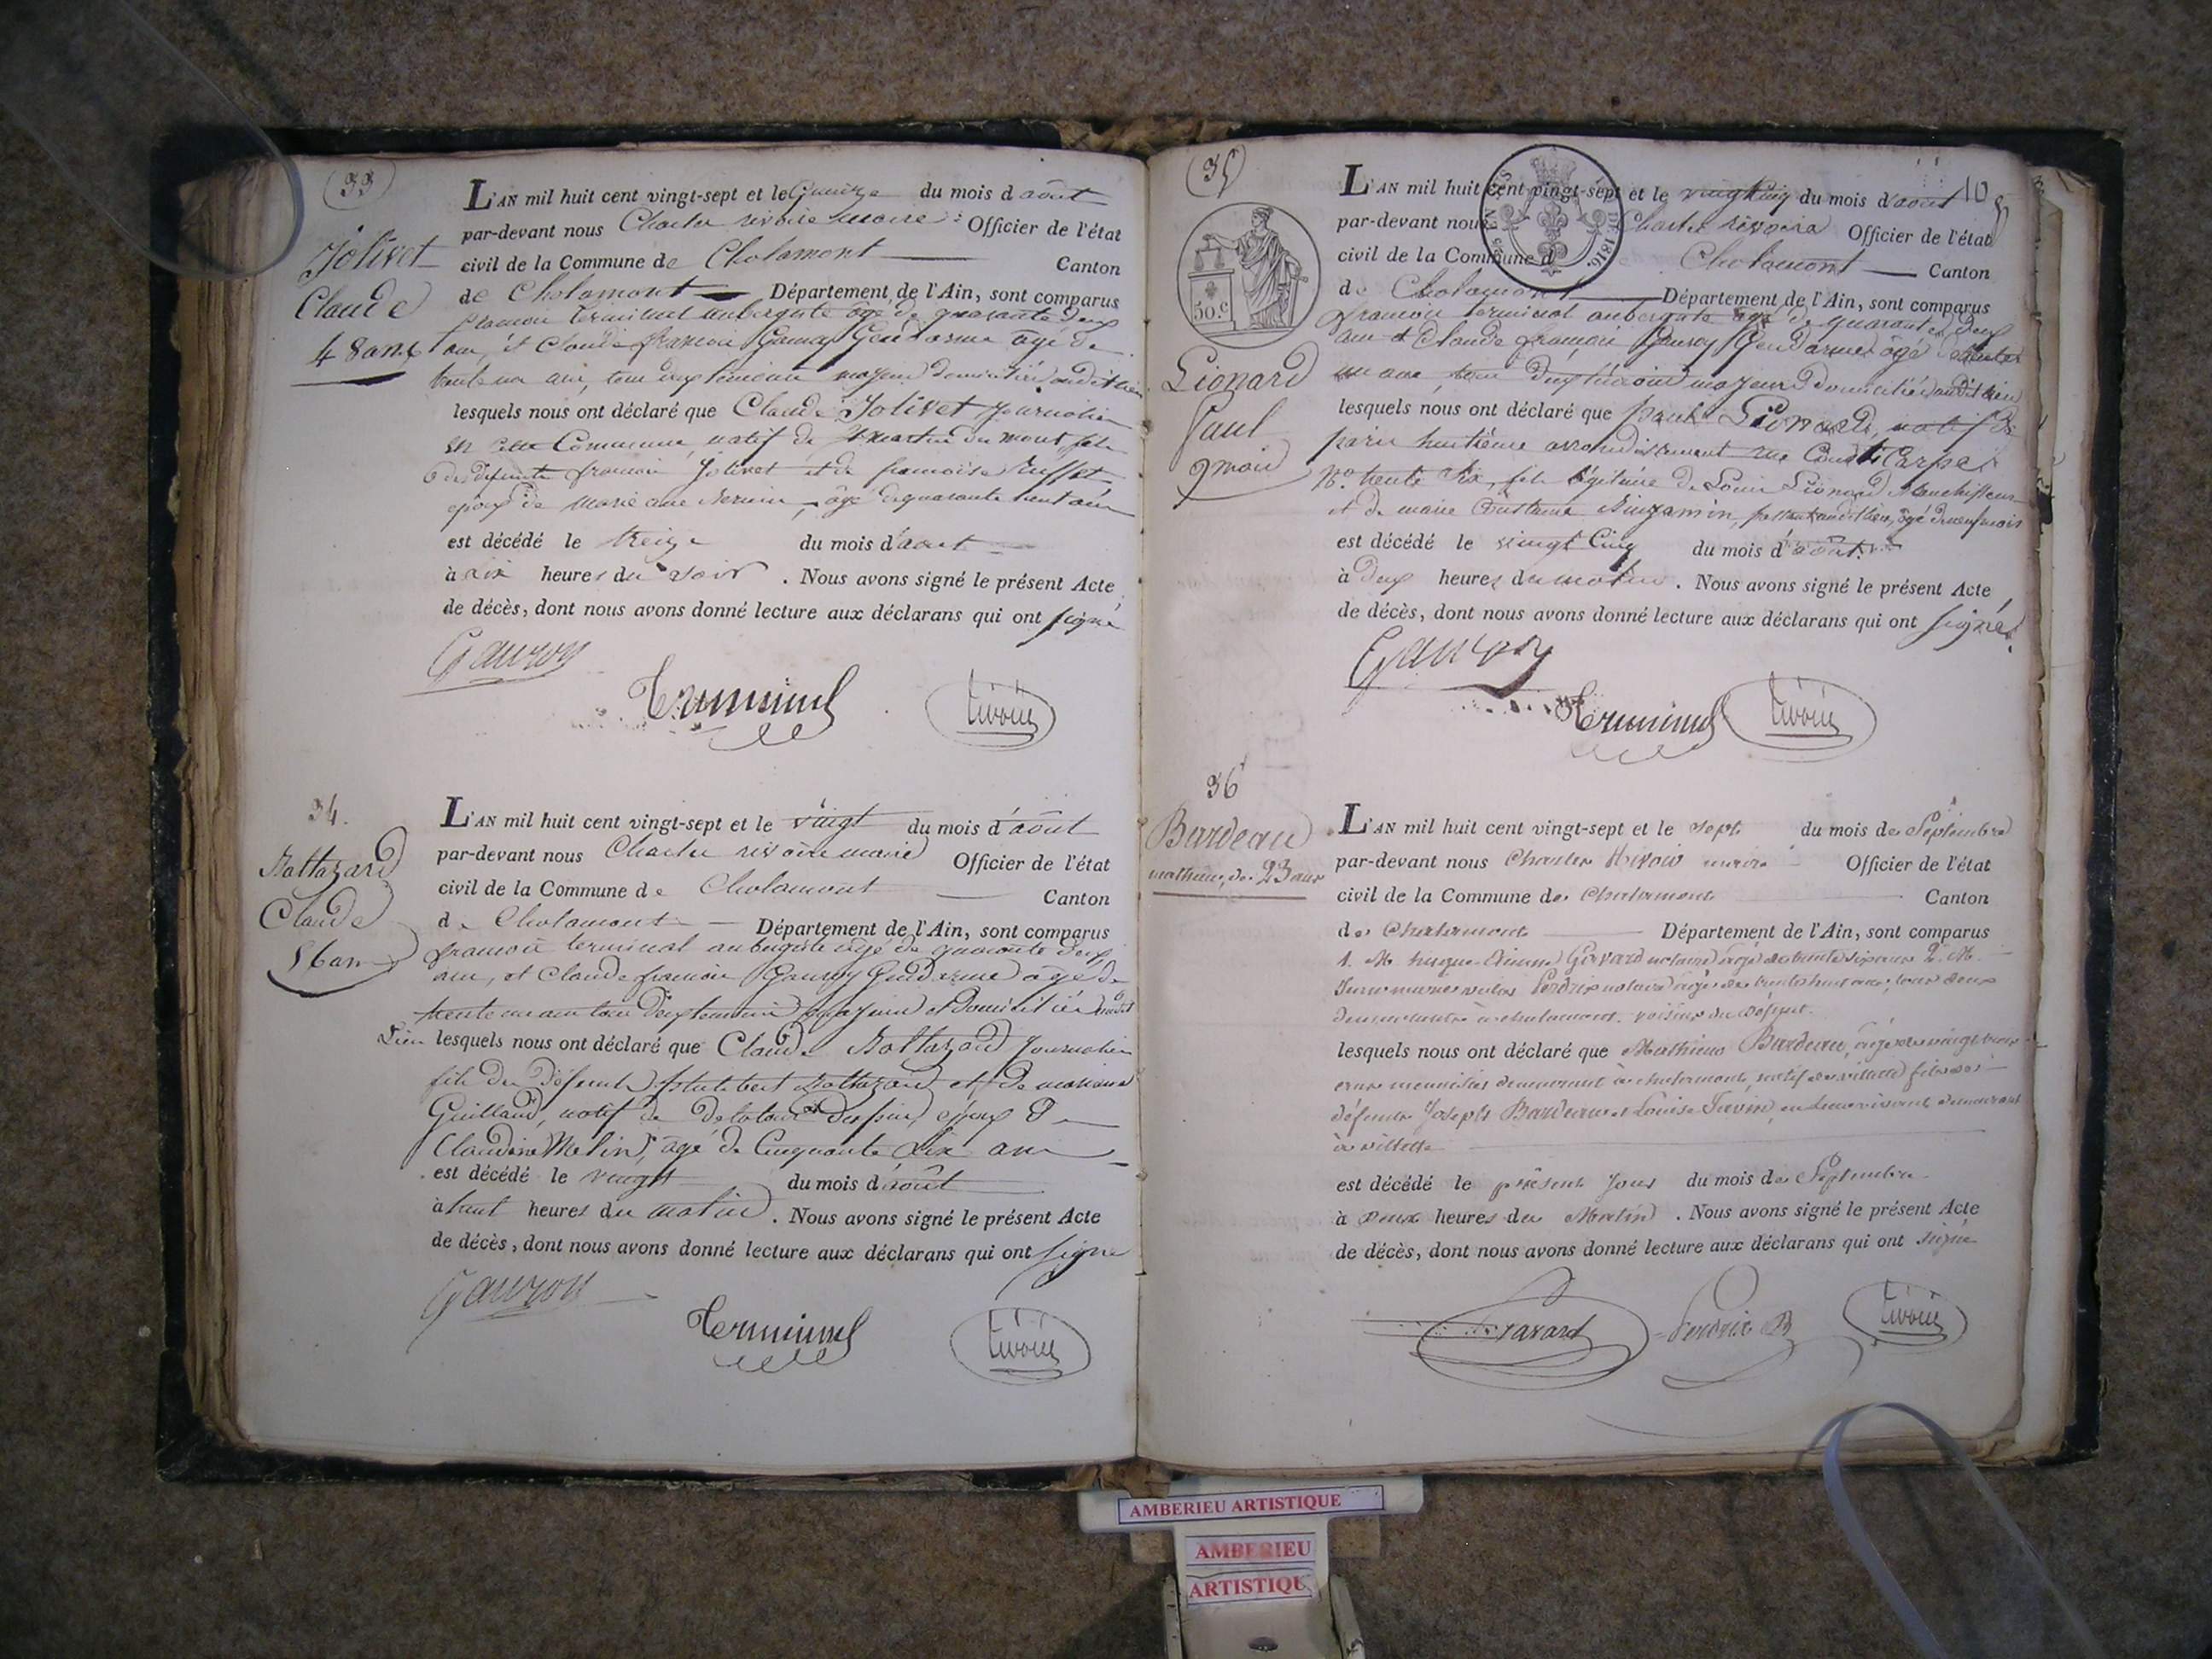 33
Jolivet
Claude
48 ans
L'AN mil huit cent vingt-sept et le Quinze du mois d'août
par-devant nous Charles rivoire maire Officier de l'état
civil de la Commune de Chalamont Canton
de Chalamont Département de l'Ain, sont comparus
françois terminal aubergiste âgé de quarante deux
ans, et Claude françois Gauroy Gendarme âgé de
trente un ans, tous deux témoins majeurs domiciliés audit lieu
lesquels nous ont déclaré que Claude Jolivet Journalier
en cette Commune, natif de st martin du mont, fils
de défunts françois Jolivet et de françoise
époux de Marie âgé de quarante huit ans
est décédé le treize du mois d'août
à six heures du soir. Nous avons signé le présent Acte
de décès, dont nous avons donné lecture aux déclarans qui ont signé
Gauroy
Terminal
rivoire
34.
Baltazard
Claude
56 ans
L'AN mil huit cent vingt-sept et le vingt du mois d'août
par-devant nous Charles rivoire maire Officier de l'état
civil de la Commune de Chalamont Canton
de Chalamont Département de l'Ain, sont comparus
françois terminal aubergiste âgé de quarante deux
ans, et Claude françois Gauroy Gendarme âgé de
trente un ans tous deux témoins majeurs et domiciliés audit
Lieu lesquels nous ont déclaré que Claude Baltazard Journalier
fils de défunts philibert Baltazard et de mariane
Guilland, natif de époux de
Claudine Melin, âgé de Cinquante six ans
est décédé le vingt du mois d'août
à huit heures du matin. Nous avons signé le présent Acte
de décès, dont nous avons donné lecture aux déclarans qui ont signé
Gauroy
Terminal
rivoire
35
10
50.c
DE 1816.
Lionard
Paul
9 mois
L'AN mil huit cent vingt-sept et le vingt cinq du mois d'août
par-devant nous Charles rivoire Officier de l'état
civil de la Commune de Chalamont Canton
de Chalamont Département de l'Ain, sont comparus
françois terminal aubergiste âgé de quarante deux
ans et Claude françois Gauroy Gendarme âgé de trente
un ans, tous deux témoins majeurs domiciliés audit lieu
lesquels nous ont déclaré que paul Lionard, natif de
paris huitième arrondissement rue
No. trente six, fils légitime de Louis Lionard
et de marie Binjamin, audit lieu, âgé de neuf mois
est décédé le vingt Cinq du mois d'août
à deux heures du matin. Nous avons signé le présent Acte
de décès, dont nous avons donné lecture aux déclarans qui ont signé.
Gauroy
Terminal
rivoire
36
Bardeau
mathieu, de 23 ans
L'AN mil huit cent vingt-sept et le sept du mois de Septembre
par-devant nous Charles Rivoire maire Officier de l'état
civil de la Commune de Chalamont Canton
de Chalamont Département de l'Ain, sont comparus
1. M. hugue-Etienne Gravard notaire âgé de trente six ans 2. M.
Perdrix notaire âgé de trente huit ans, tous deux
demeurants à chalamont, voisins du défunt.
lesquels nous ont déclaré que Mathieu Bardeau, âgé de vingt trois
ans menuisier demeurant à chalamont, natif de villette fils de
défunts Joseph Bardeau et Louise en leur vivant demeurant
à villette
est décédé le présent Jour du mois de Septembre
à deux heures du Matin. Nous avons signé le présent Acte
de décès, dont nous avons donné lecture aux déclarans qui ont signé
Gravard
Perdrix
rivoire
AMBERIEU ARTISTIQUE
AMBERIEU
ARTISTIQUE